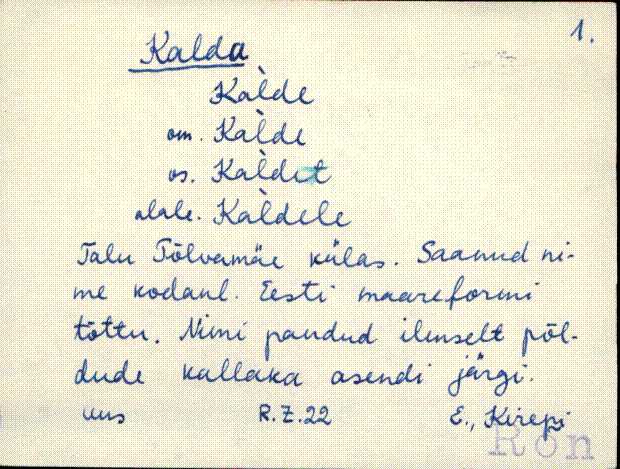 1.
Kalda
Kàlde
om. Kàlde
os. Kàldet
alale. Kàldele
Talu Tõlvamäe külas. Saanud ni-
me kodanl. Eesti maareformi
tõttu. Nimi pandud ilmselt põl-
dude kallaka asendi järgi.
uus R.Z.22 E., Kirepi
Rõn